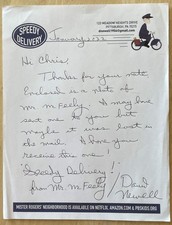 SPEEDY
DELIVERY
PITTSBURGH, PA
January, 2022
Hi Chris!
Thanks for your note
Enclosed is a note of
Mr. McFeely. I may have
sent one to you but
maybe it was lost in
the mail. I hope you
receive this one!
"Speedy Delivery"!
from Mr. McFeely
David
Newell
MISTER ROGERS' NEIGHBORHOOD IS AVAILABLE ON NETFLIX, AMAZON.COM & PBSKIDS.ORG